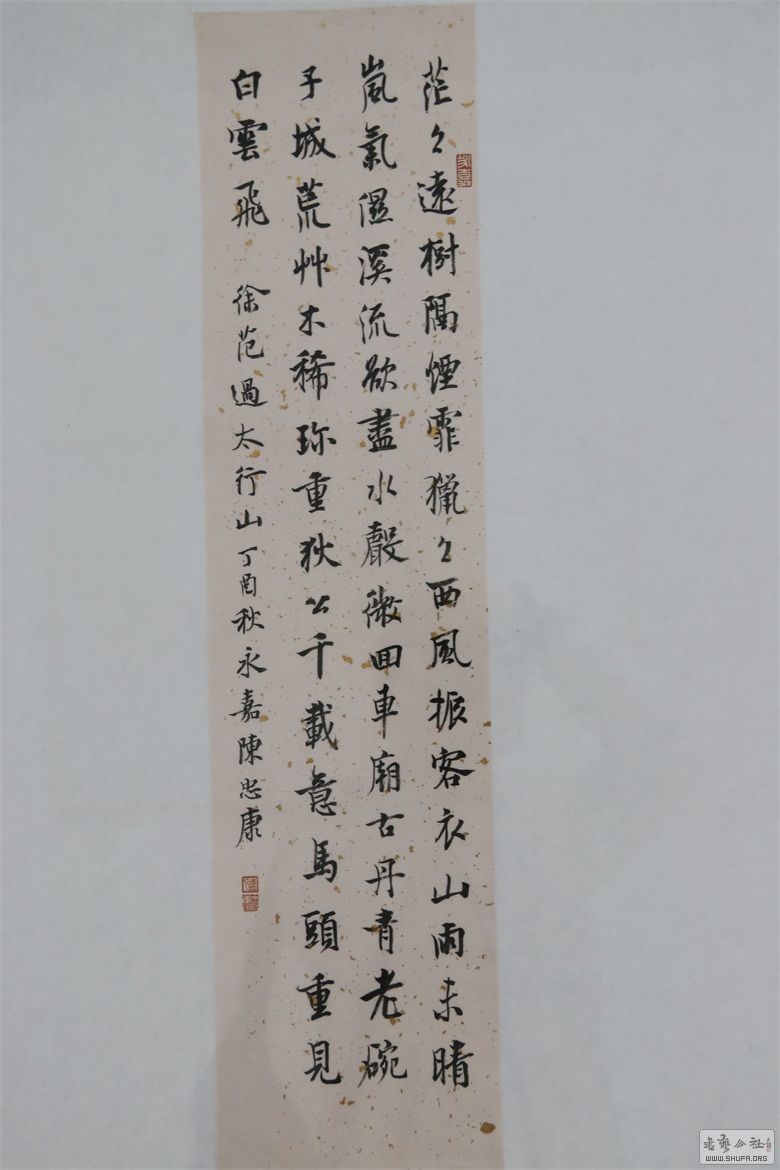 茫々遠樹隔煙霏獵々西風振客衣山雨未晴
嵐氣濕溪流欲盡水聲微回車廟古丹青老碗
子城荒艸木稀珎重狄公千載意馬頭重見
白雲飛
徐范過太行山丁酉秋永嘉陳忠康
書藝公社
WWW.SHUFA.ORG